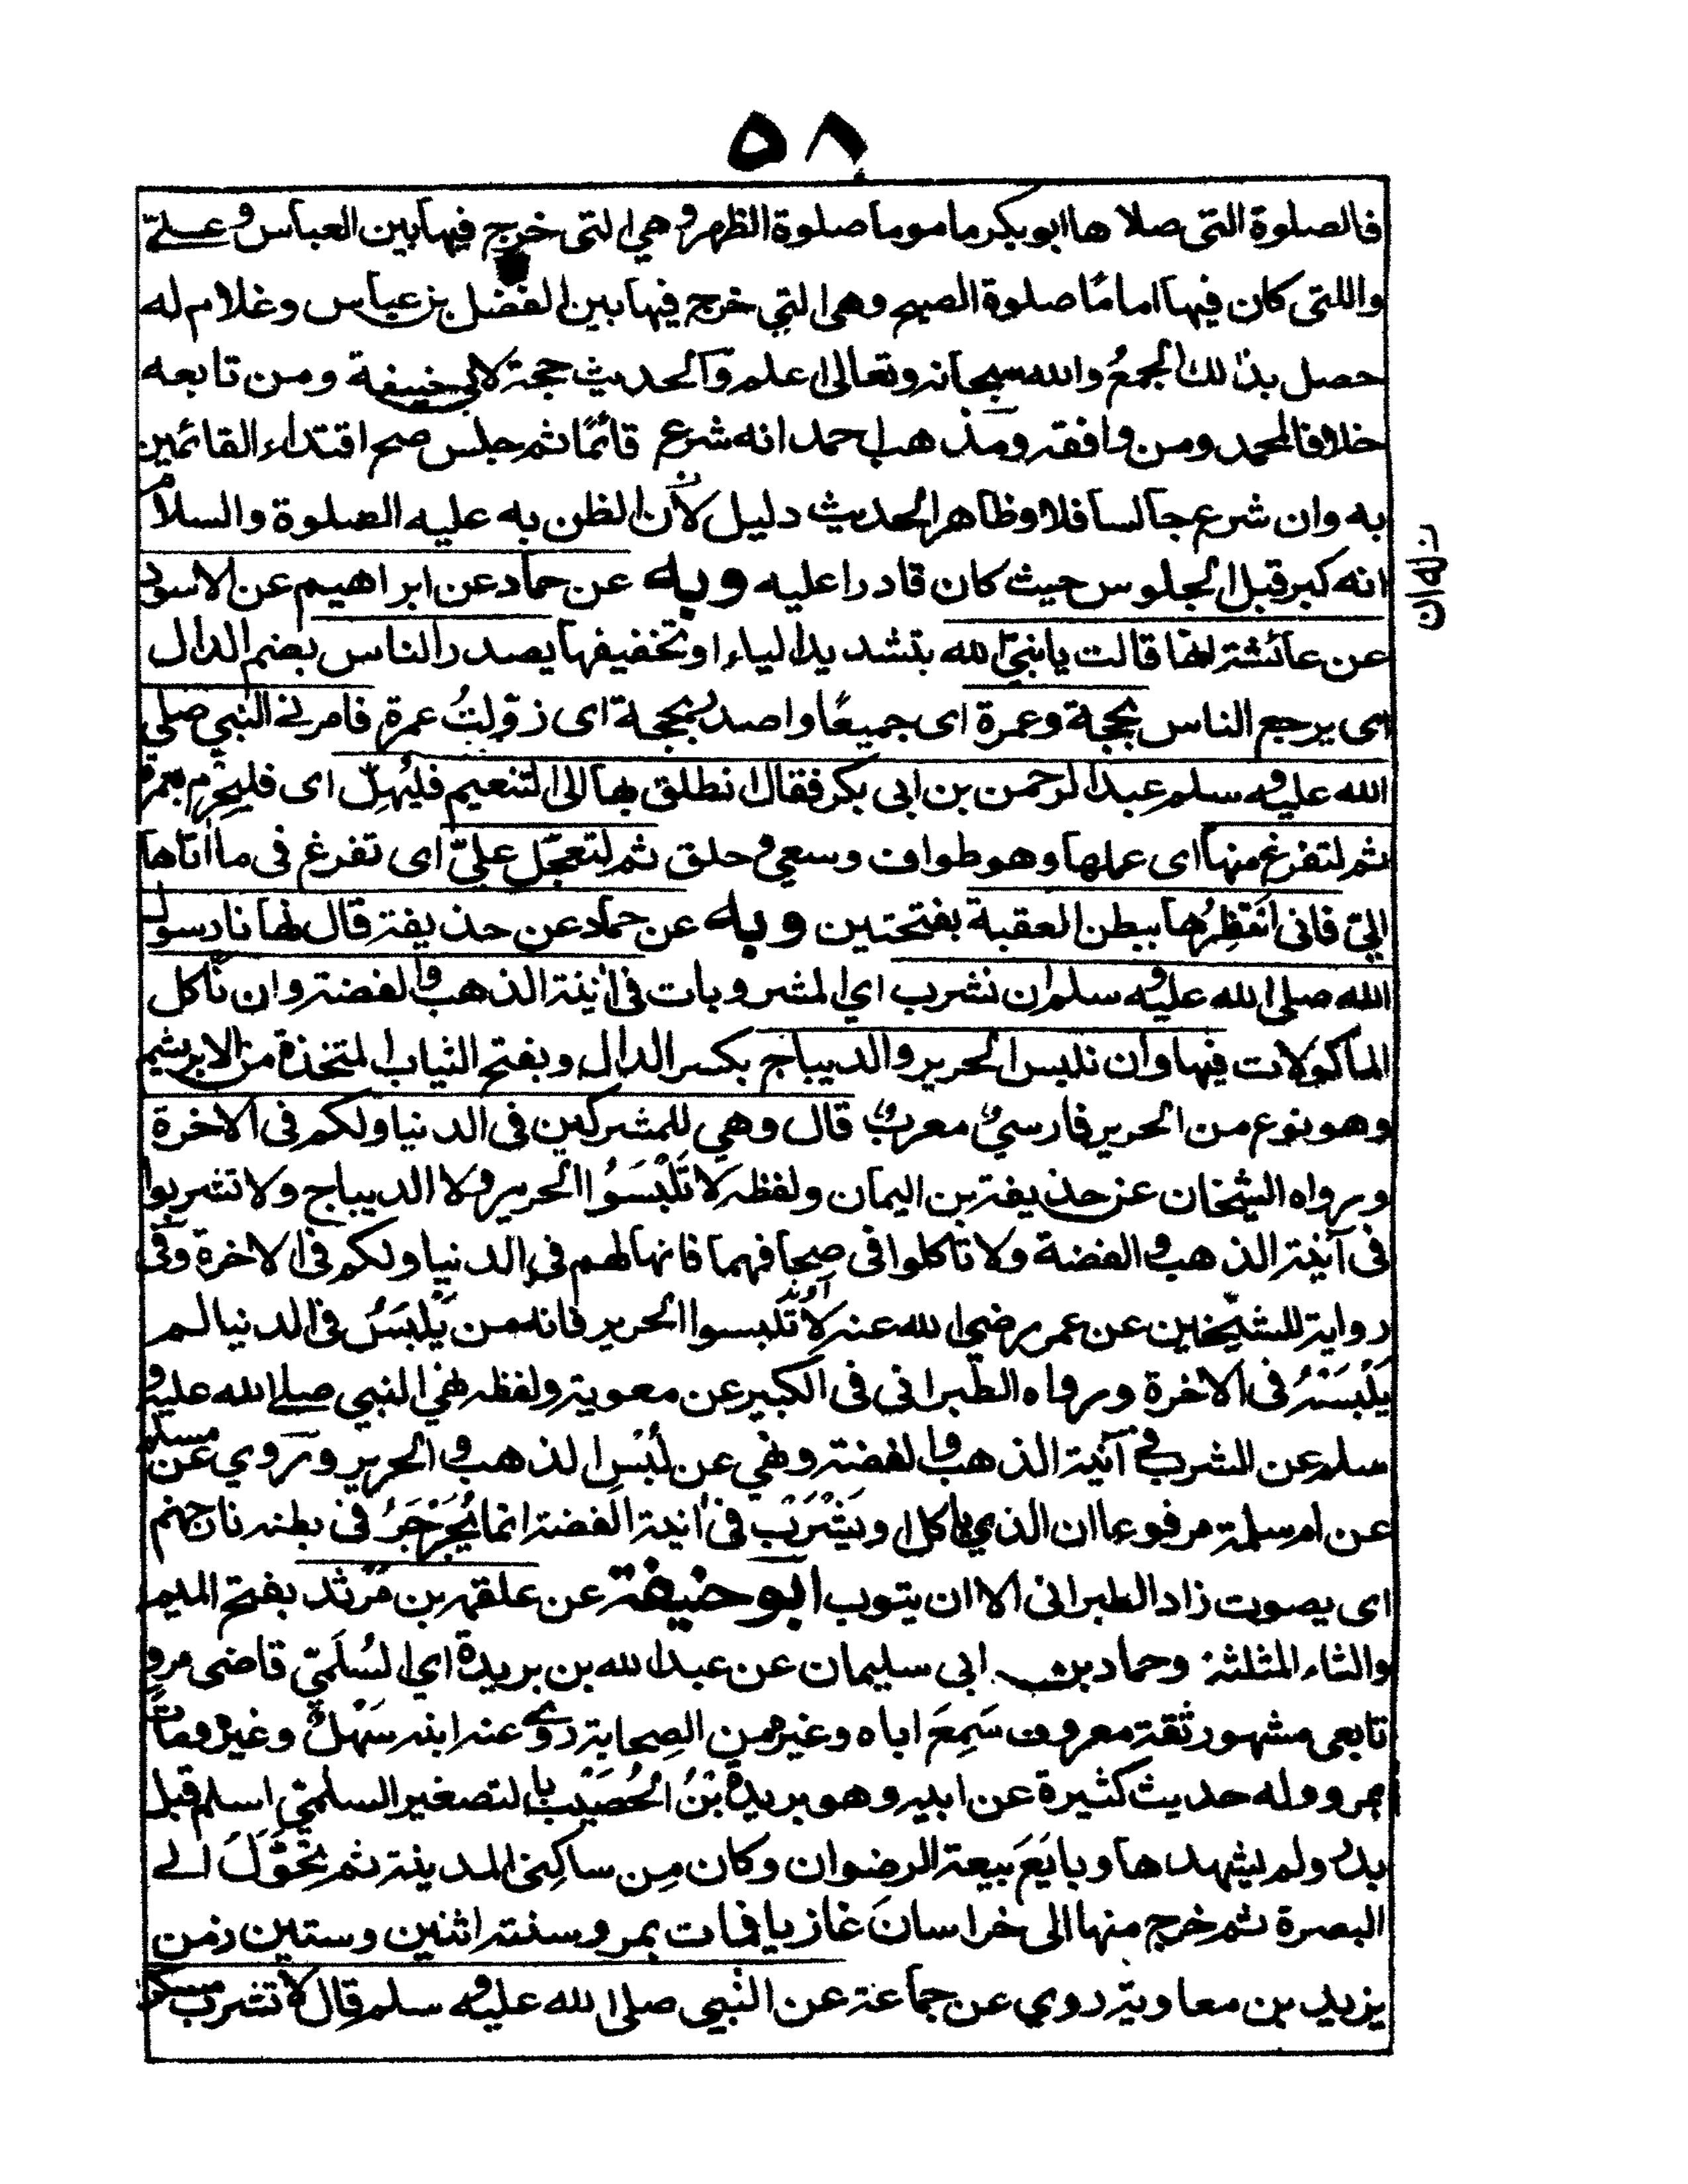 ٥٨
فالصلوة التى صلاها ابو بكر ماموما صلوة الظهر وهي التى خرج فيها بين العباس و علىّ
واللتى كان فيها امامًا صلوة الصبح وهى التي خرج فيها بين الفضل بن عباس وغلام له
حصل بذلك الجمعُ والله سبحانه وتعالى اعلم والحديث حجة لابي حنيفة ومن تابعه
خلافا لمحمد ومن وافقه ومذهب احمد انه شرع قائمًا ثم جلس صح اقتداء القائمين
به وان شرع جالسا فلا وظاهر الحديث دليل لأن الظن به عليه الصلوة والسلام
انه كبر قبل الجلوس حيث كان قادرا عليه وبه عن حماد عن ابراهيم عن الاسود
عن عائشة انها قالت يا نبيّ الله بتشديد الياء او تخفيفها يصدر الناس بضم الدال
اى يرجع الناس بحجة وعمرة اى جميعًا واصدر بحجة اى فامرني النبي صلى
الله عليه و سلم عبد الرحمن بن ابى بكر فقال انطلق بها الى التنعيم فليُهلّ اى فليحرم بعمرة
ثم لتفرغ منها اى عملها وهو طواف وسعي و حلق ثم لتعجّل عليّ اى تفرغ فى ما اتاها
اليّ فانى انتظِرُها ببطن العقبة بفتحتين وبه عن حماد عن حذيفة قال نهانا رسول
الله صلى الله عليه و سلم ان نشرب اي المشروبات فى اٰنية الذهب والفضة وان ناكل
الماكولات فيها وان نلبس الحرير والديباج بكسر الدال وبفتح الثياب المتخذة من الابريشم
وهو نوع من الحرير فارسيٌ معربٌ قال وهي للمشركين فى الدنيا ولكم فى الاخرة
ورواه الشيخان عن حذيفة بن اليمان ولفظه لا تَلْبَسُوا الحرير ولا الديباج ولا تشربوا
فى آنية الذهب والفضة ولا تاكلوا فى صحافهما فانها لهم فى الدنيا ولكم فى الاخرة وفى
رواية للشيخين عن عمر رضي الله عنه لا تلبسوا الحرير فانه من يَلبَسُ فى الدنيا لم
يَلْبَسْهُ فى الاخرة ورواه الطبرانى فى الكبير عن معوية ولفظه نهي النبي صلى الله عليه و
سلم عن الشرب في آنية الذهب والفضة ونهي عن لُبْسِ الذهب و الحرير وروي عن مسلم
عن ام سلمة مرفوعا ان الذي ياكل ويَشْرَبْ فى اٰنية الفضة انما يُجَرْجَرُ فى بطنه نار جهنم
اى يصوت زاد الطبرانى الا ان يتوب ابو حنيفة عن علقمة بن مَرْثد بفتح الميم
والثاء المثلثة وحماد بن ابى سليمان عن عبد الله بن بريدة اي السُلَمي قاضى مرو
تابعى مشهور ثقة معروف سَمِعَ اباه وغيره من الصحابة روے عنه ابنه سَهْلٌ وغيره ومات
بمرو وله حديث كثيرة عن ابيه وهو بريدة بْنُ الحُصَيْب بالتصغير السلمي اسلم قبل
بدر ولم يشهدها وبايَعَ بيعة الرضوان وكان مِن ساكِنى المدينة ثم تحَوَّلَ الے
البصرة ثم خرج منها الى خراسانَ غازيا فمات بمرو سنة اثنين وستين زمن
يزيد بن معاوية روي عن جماعة عن النّبي صلى الله عليه و سلم قال لا تشرب مسكر